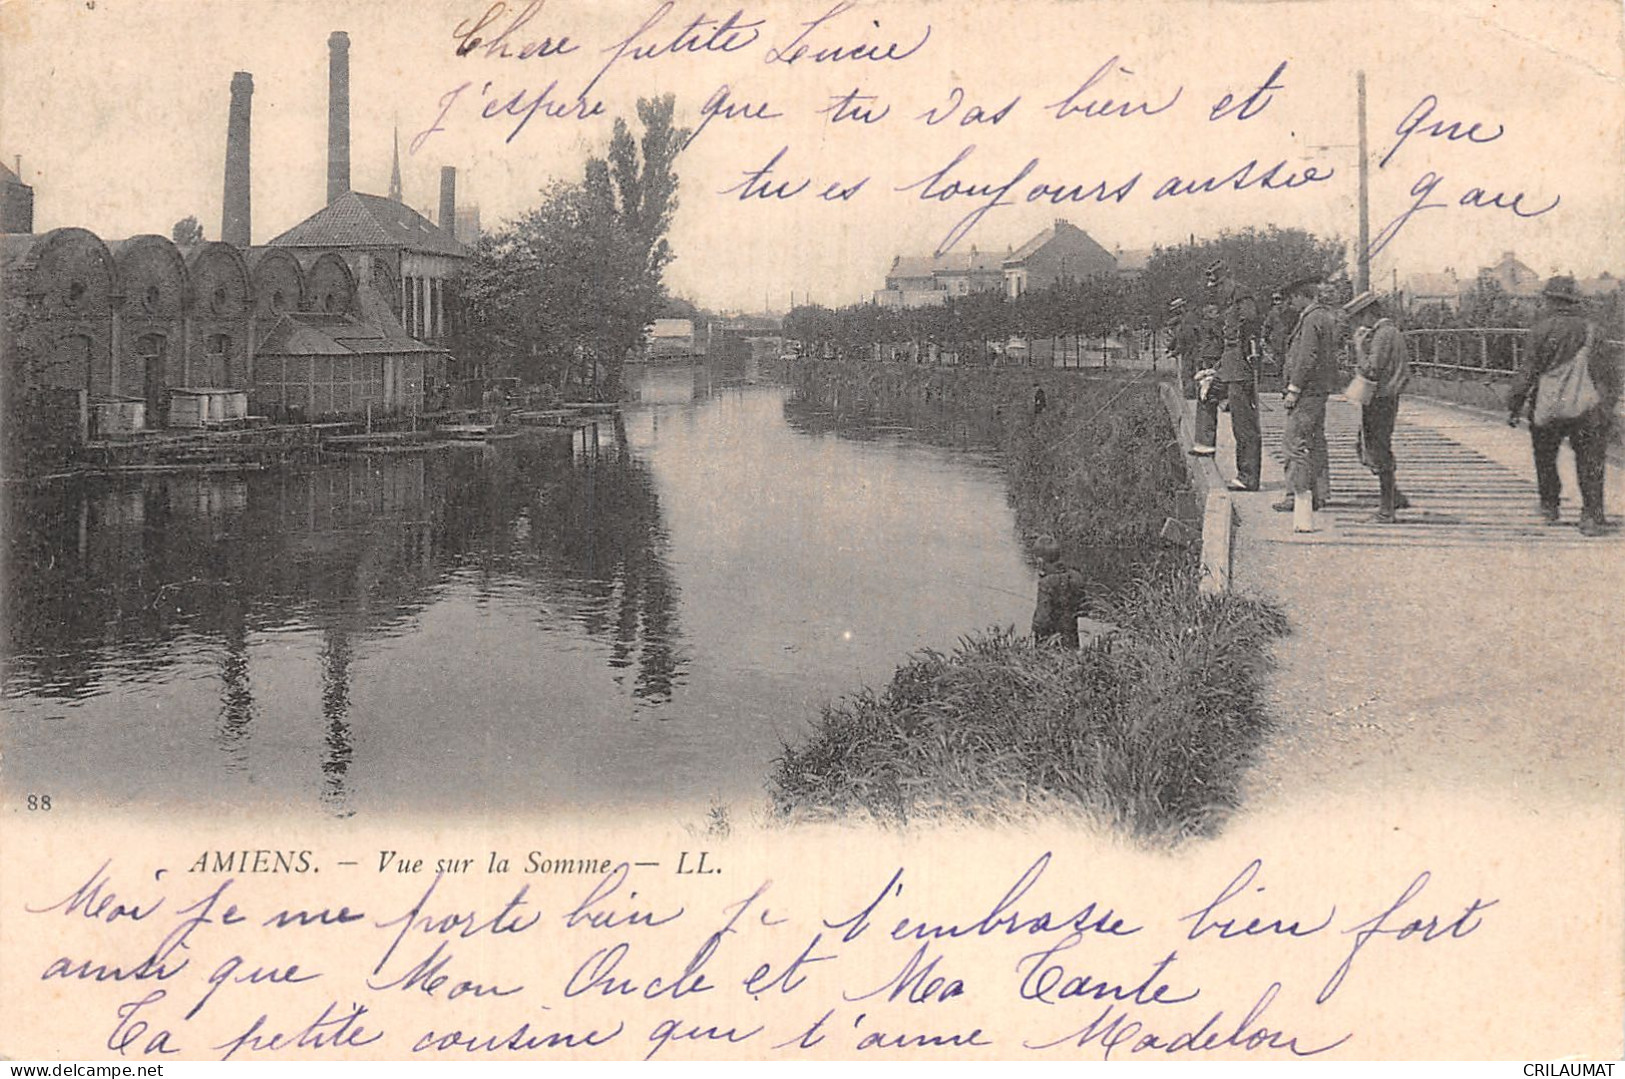 Chere petite Lucie
J'espere que tu vas bien et que
tu es toujours aussie gaie
88
AMIENS. — Vue sur la Somme. — LL.
Moi je me porte bien je t'embrasse bien fort
ainsi que Mon Oncle et Ma Tante
Ta petite cousine qui t'aime Madelon
delcampe.net
CRILAUMAT